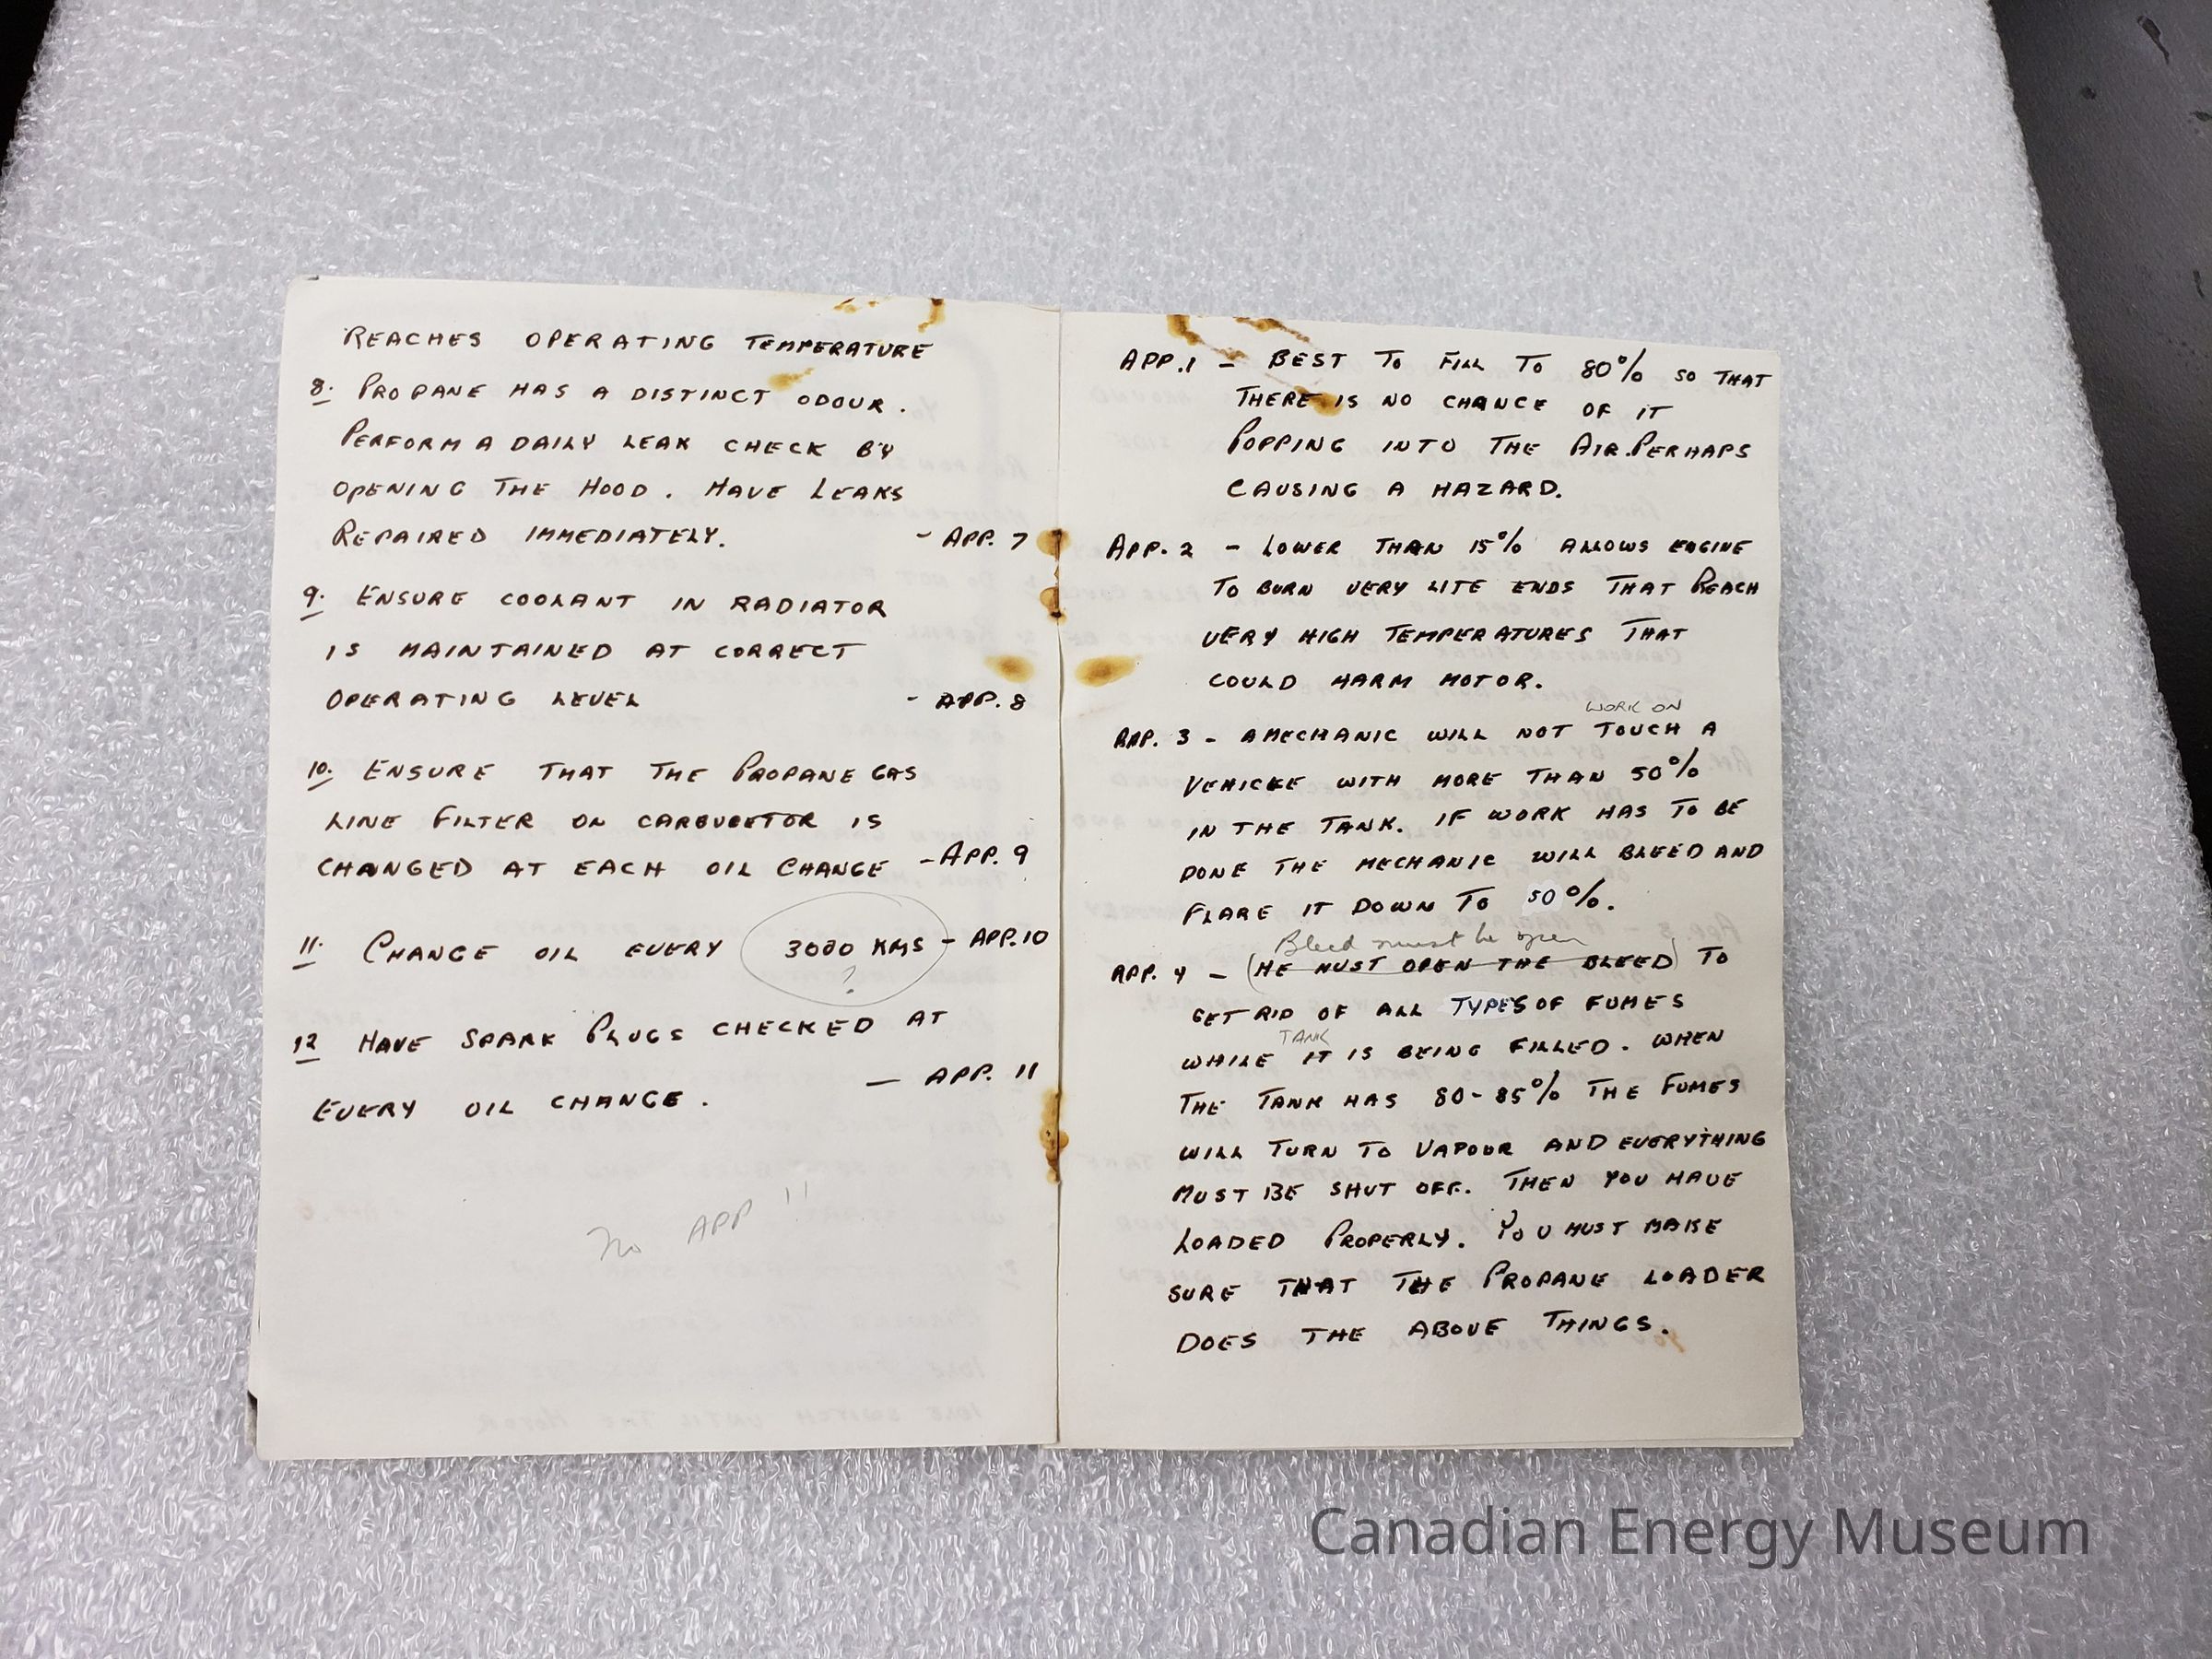 REACHES OPERATING TEMPERATURE
8. PROPANE HAS A DISTINCT ODOUR.
PERFORM A DAILY LEAK CHECK BY
OPENING THE HOOD. HAVE LEAKS
REPAIRED IMMEDIATELY. - APP. 7
9. ENSURE COOLANT IN RADIATOR
IS MAINTAINED AT CORRECT
OPERATING LEVEL - APP. 8
10. ENSURE THAT THE PROPANE GAS
LINE FILTER ON CARBURETOR IS
CHANGED AT EACH OIL CHANGE - APP. 9
11. CHANGE OIL EVERY 3000 KMS - APP. 10
?
12 HAVE SPARK PLUGS CHECKED AT
EVERY OIL CHANGE. - APP. 11
No APP 11
APP. 1 - BEST TO FILL TO 80% SO THAT
THERE IS NO CHANCE OF IT
POPPING INTO THE AIR. PERHAPS
CAUSING A HAZARD.
APP. 2 - LOWER THAN 15% ALLOWS ENGINE
TO BURN VERY LITE ENDS THAT REACH
VERY HIGH TEMPERATURES THAT
COULD HARM MOTOR.
WORK ON
APP. 3 - A MECHANIC WILL NOT TOUCH A
VEHICLE WITH MORE THAN 50%
IN THE TANK. IF WORK HAS TO BE
DONE THE MECHANIC WILL BLEED AND
FLARE IT DOWN TO 50%.
Bleed must be open
APP. 4 - (HE MUST OPEN THE BLEED) TO
GET RID OF ALL TYPES OF FUMES
TANK
WHILE IT IS BEING FILLED. WHEN
THE TANK HAS 80-85% THE FUMES
WILL TURN TO VAPOUR AND EVERYTHING
MUST BE SHUT OFF. THEN YOU HAVE
LOADED PROPERLY. YOU MUST MAKE
SURE THAT THE PROPANE LOADER
DOES THE ABOVE THINGS.
Canadian Energy Museum